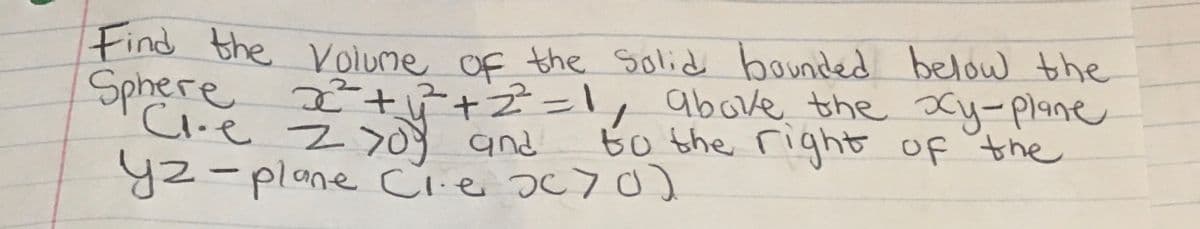 Find the Volume of the Solid bounded below the
Sphere x²+y²+z²=1, above the xy-plane
(i.e z>0) and to the right of the
yz-plane (i.e x>0)